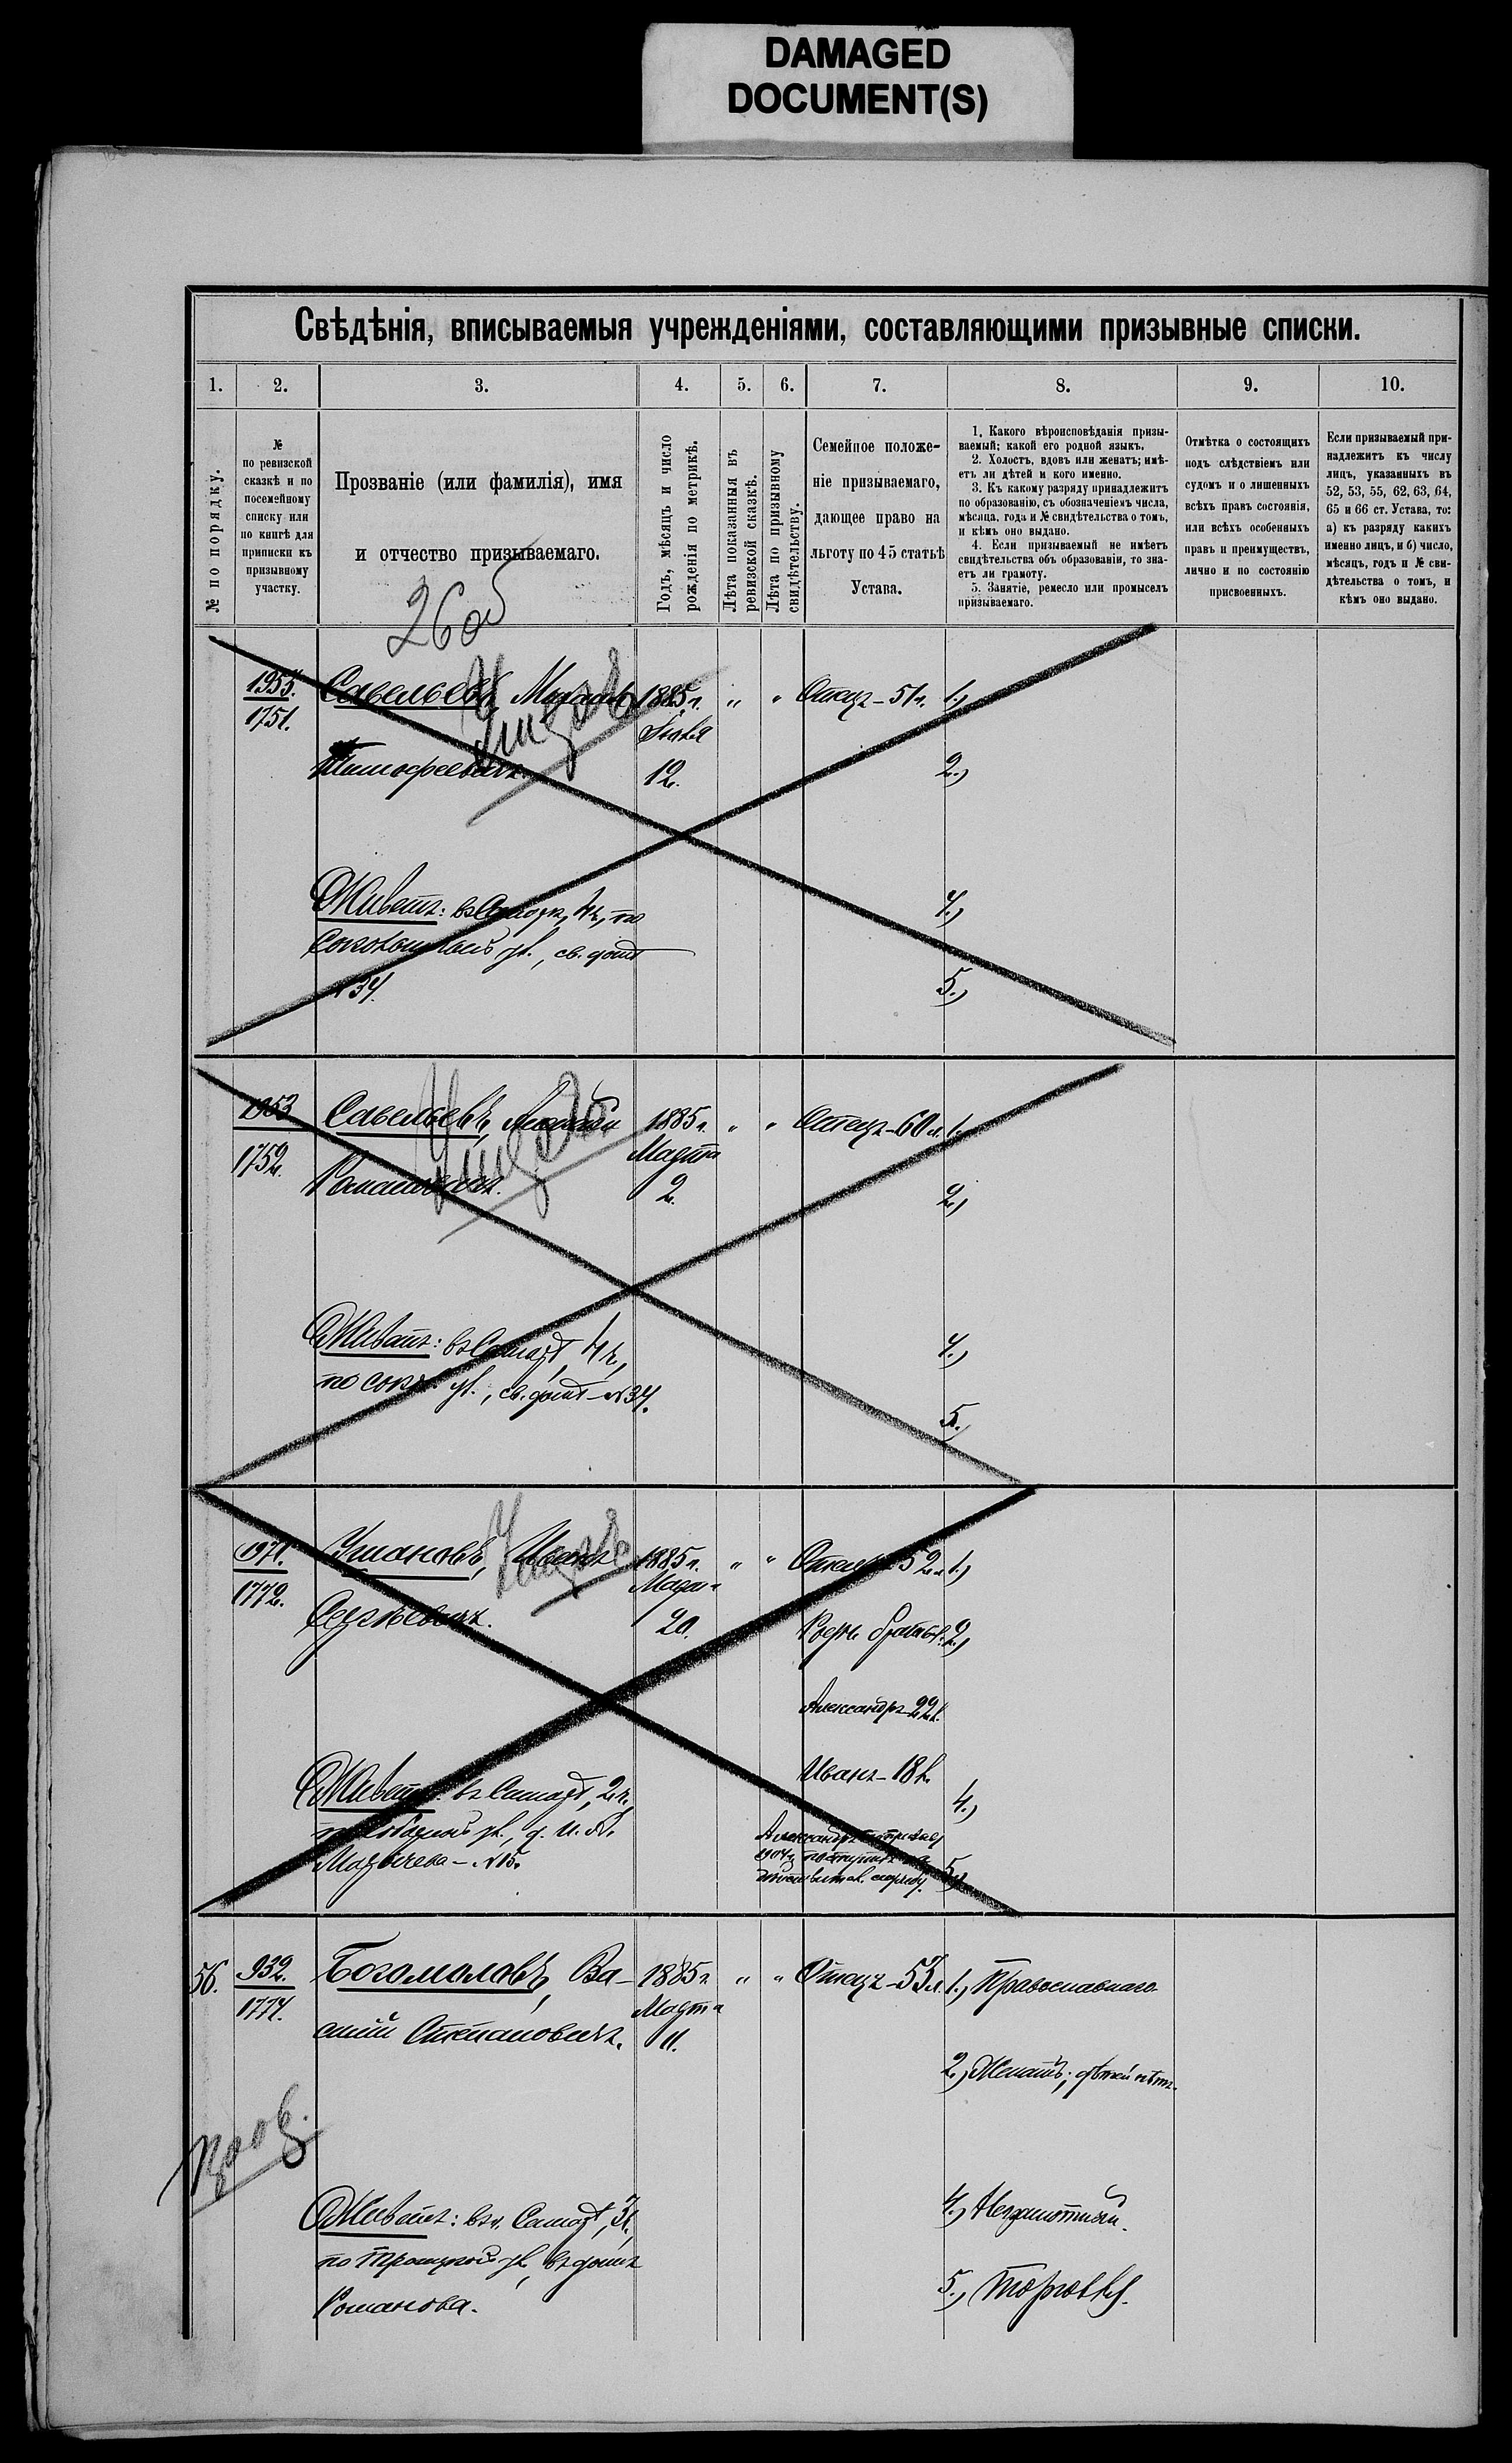 DAMAGED
DOCUMENT(S)
Свѣдѣнія, вписываемыя учрежденіями, составляющими призывные списки.
1. 2. 3. 4. 5. 6. 7. 8. 9. 10.
№ по порядку.
№
по ревизской
сказкѣ и по
посемейному
списку или
по книгѣ для
приписки къ
призывному
участку.
Прозваніе (или фамилія), имя
и отчество призываемаго.
Годъ, мѣсяцъ и число
рожденія по метрикѣ.
Лѣта показанныя въ
ревизской сказкѣ.
Лѣта по призывному
свидѣтельству.
Семейное положе-
ніе призываемаго,
дающее право на
льготу по 45 статьѣ
Устава.
1. Какого вѣроисповѣданія призы-
ваемый; какой его родной языкъ.
2. Холостъ, вдовъ или женатъ; имѣ-
етъ ли дѣтей и кого именно.
3. Къ какому разряду принадлежитъ
по образованію, съ обозначеніемъ числа,
мѣсяца, года и № свидѣтельства о томъ,
и кѣмъ оно выдано.
4. Если призываемый не имѣетъ
свидѣтельства объ образованіи, то зна-
етъ ли грамоту.
5. Занятіе, ремесло или промыселъ
призываемаго.
Отмѣтка о состоящихъ
подъ слѣдствіемъ или
судомъ и о лишенныхъ
всѣхъ правъ состоянія,
или всѣхъ особенныхъ
правъ и преимуществъ,
лично и по состоянію
присвоенныхъ.
Если призываемый при-
надлежитъ къ числу
лицъ, указанныхъ въ
52, 53, 55, 62, 63, 64,
65 и 66 ст. Устава, то:
а) къ разряду какихъ
именно лицъ, и б) число,
мѣсяцъ, годъ и № сви-
дѣтельства о томъ, и
кѣмъ оно выдано.
26об
1955. Савельевъ, 1885 г. " " Отецъ-51 л. 1.)
1751.
Тимофеевичъ. 12. 2.)
Живетъ: въ Самарѣ, 4 ч., по 4.)
ул., св. домъ
№ 34. 5.)
1953 Савельевъ, 1885 г. " " Отецъ-60 л. 1.
1752. Марта
Романовичъ. 2. 2.)
Живетъ: въ Самарѣ, 4 ч., 4.)
по сок. ул., св. домъ-№ 34. 5.)
1971. Ушановъ, Иванъ 1885 г. " " Отецъ 52 л. 1.)
1772. Марта
Сергѣевичъ. 20. Родн. братья: 2.)
Александръ-22 л.
Иванъ-18 л.
Живетъ: въ Самарѣ, 2 ч., 4.)
ул., д. И. Ав. Александръ
1904 г. поступилъ на
Мазычева-№ 15. 5.)
56. 932. Богомоловъ, Ва- 1885 г. " " Отецъ-53 л. 1.) Православнаго
1774. Марта
силій Степановичъ. 11.
2.) Женатъ; дѣтей нѣтъ.
Живетъ: въ г. Самарѣ, 3 ч., 4.) Неграмотный.
по Троицкой ул., въ домѣ
Романова. 5.) Торговецъ.